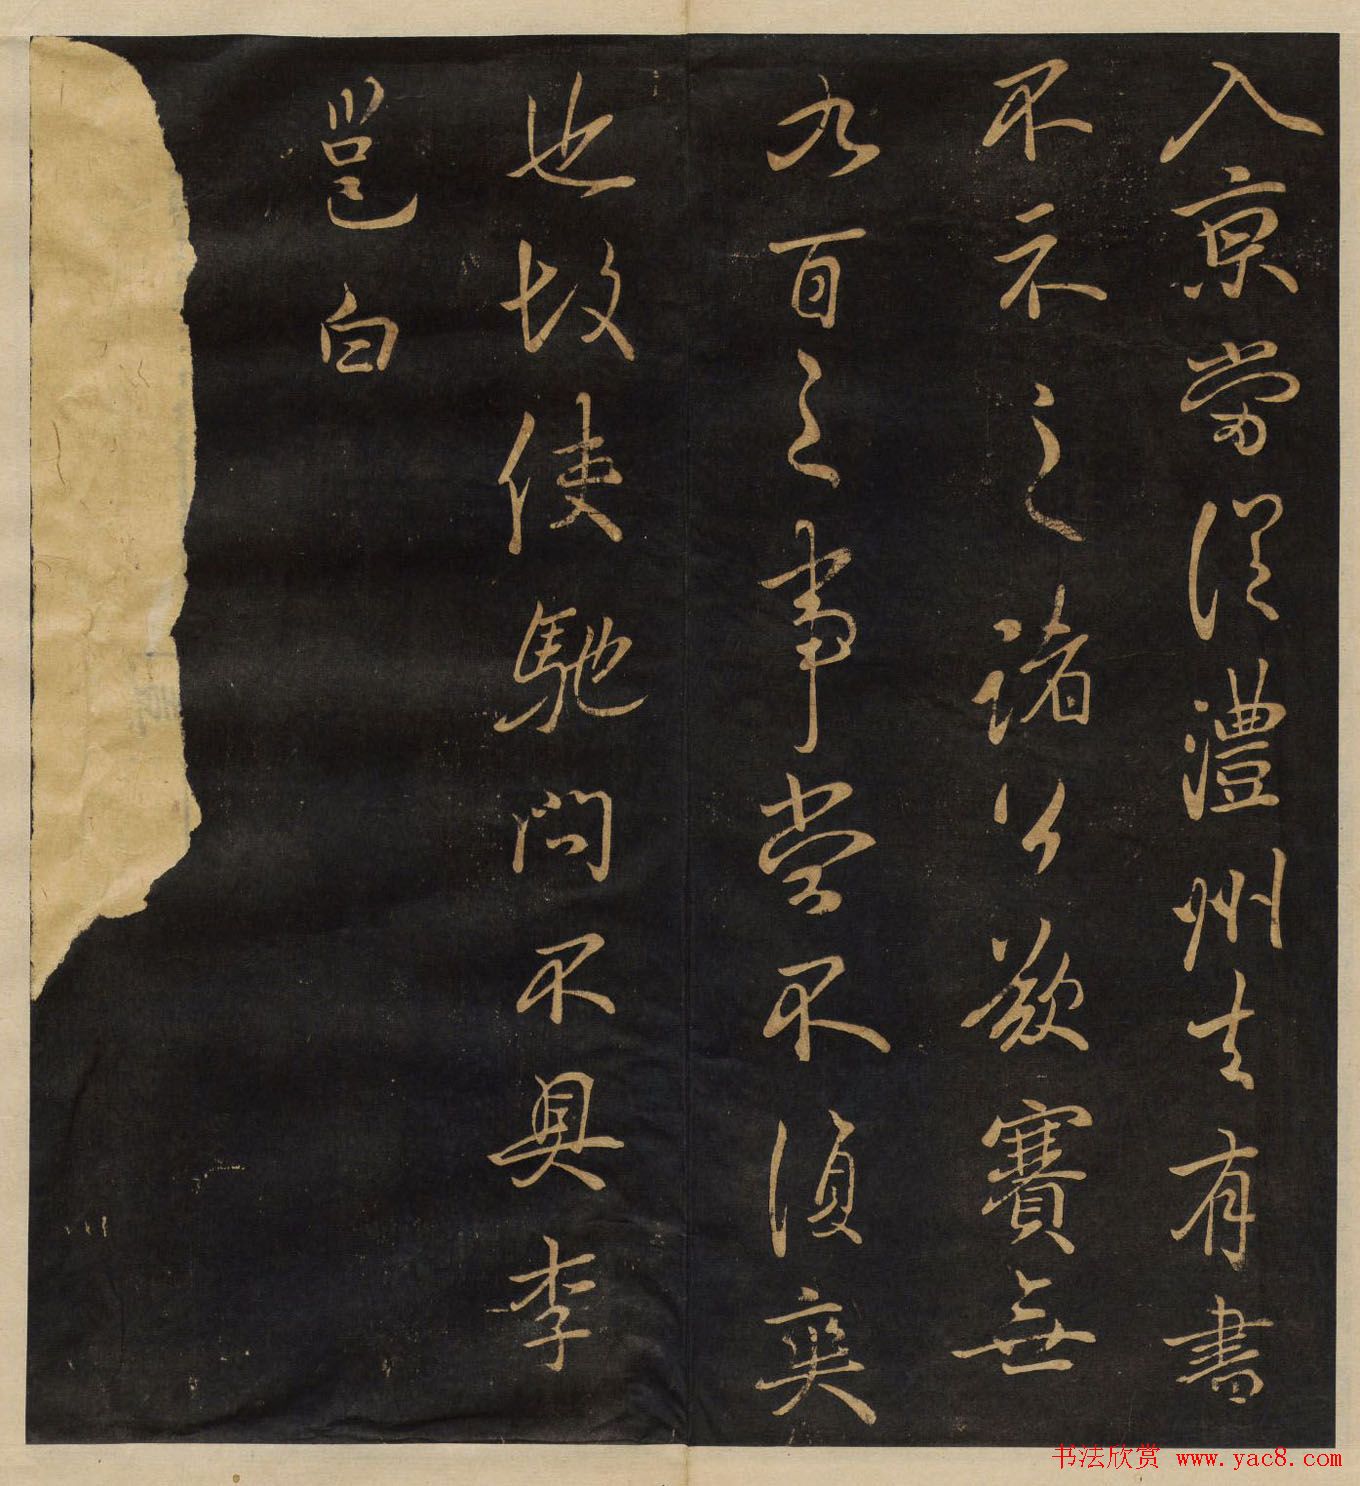 入京當從澧州去有書
不示之諸公欲賽無
九百之事當不復爽
也故使馳問不具李
邕白
书法欣赏 www.yac8.com